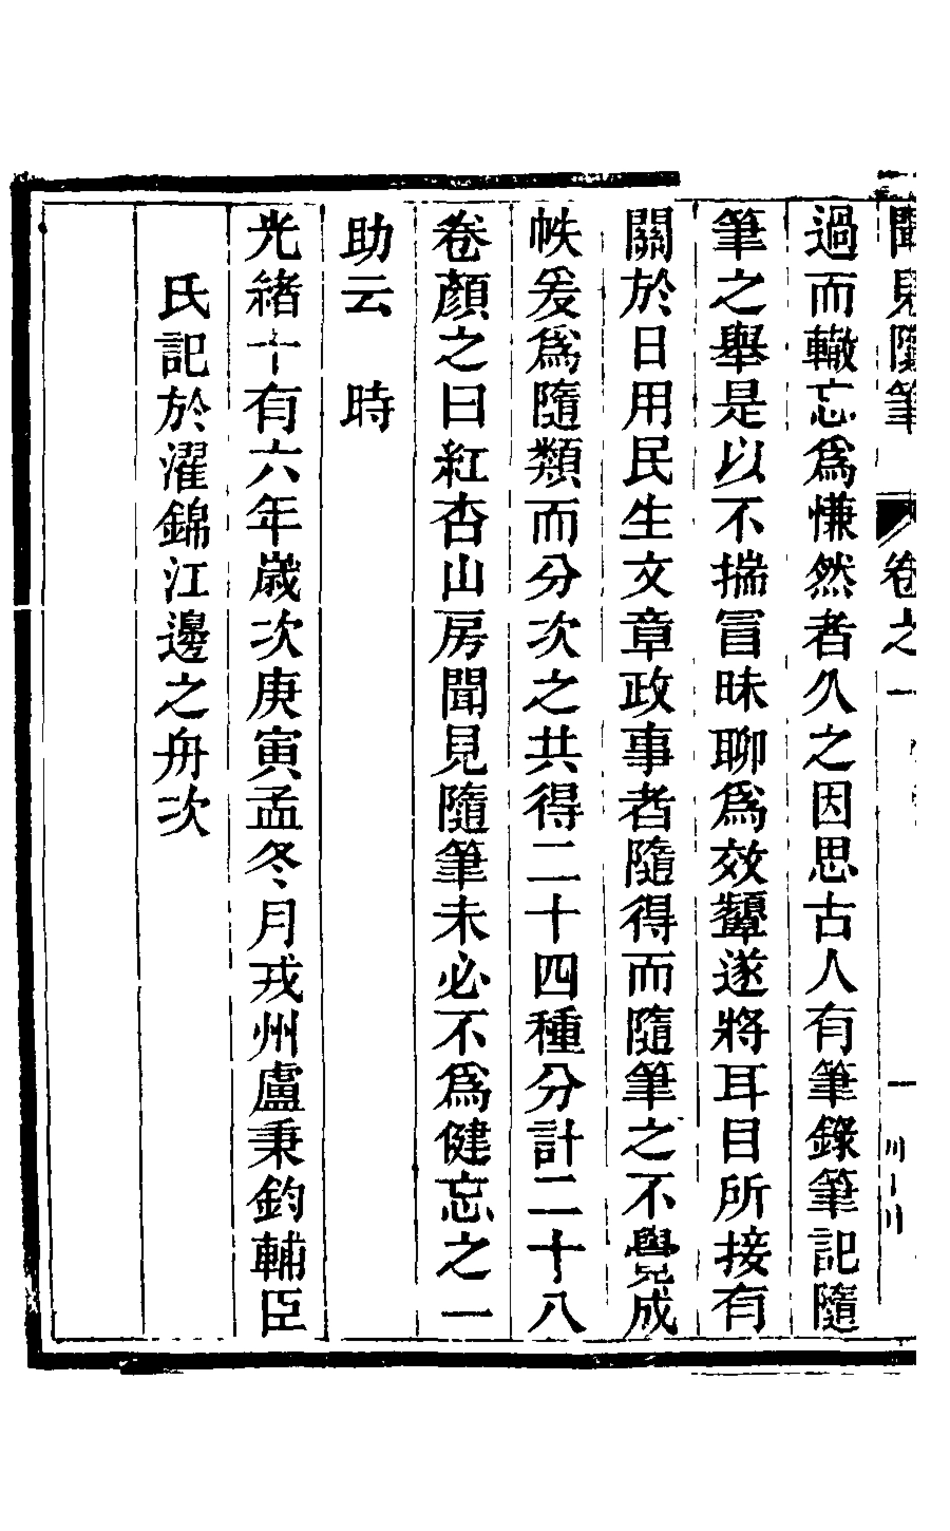 聞見隨筆 卷之一
過而輙忘爲慊然者久之因思古人有筆錄筆記隨
筆之舉是以不揣冒昧聊爲效顰遂將耳目所接有
關於日用民生文章政事者隨得而隨筆之不覺成
帙爰爲隨類而分次之共得二十四種分計二十八
卷顏之曰紅杏山房聞見隨筆未必不爲健忘之一
助云 時
光緒十有六年歲次庚寅孟冬月戎州盧秉鈞輔臣
氏記於濯錦江邊之舟次